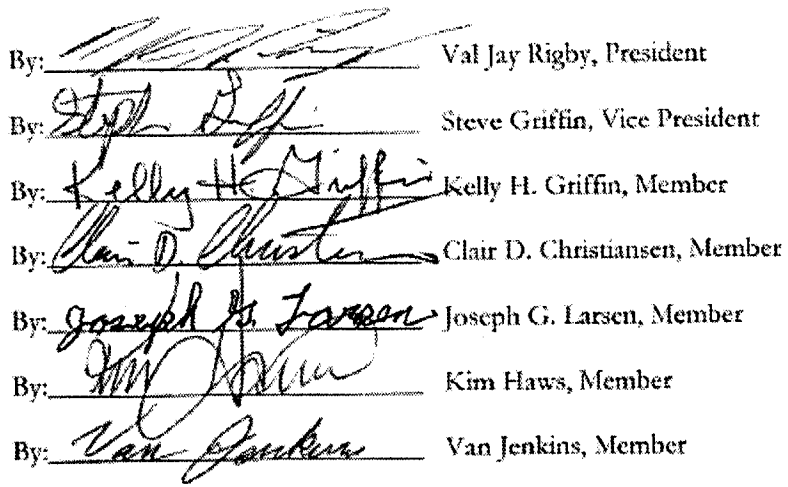 By: Val Jay Rigby, President
By: Steph Griffin Steve Griffin, Vice President
By: Kelly H Griffin Kelly H. Griffin, Member
By: Clair D. Christian Clair D. Christiansen, Member
By: Joseph G. Larsen Joseph G. Larsen, Member
By: Kim Haws, Member
By: Van Jenkins Van Jenkins, Member